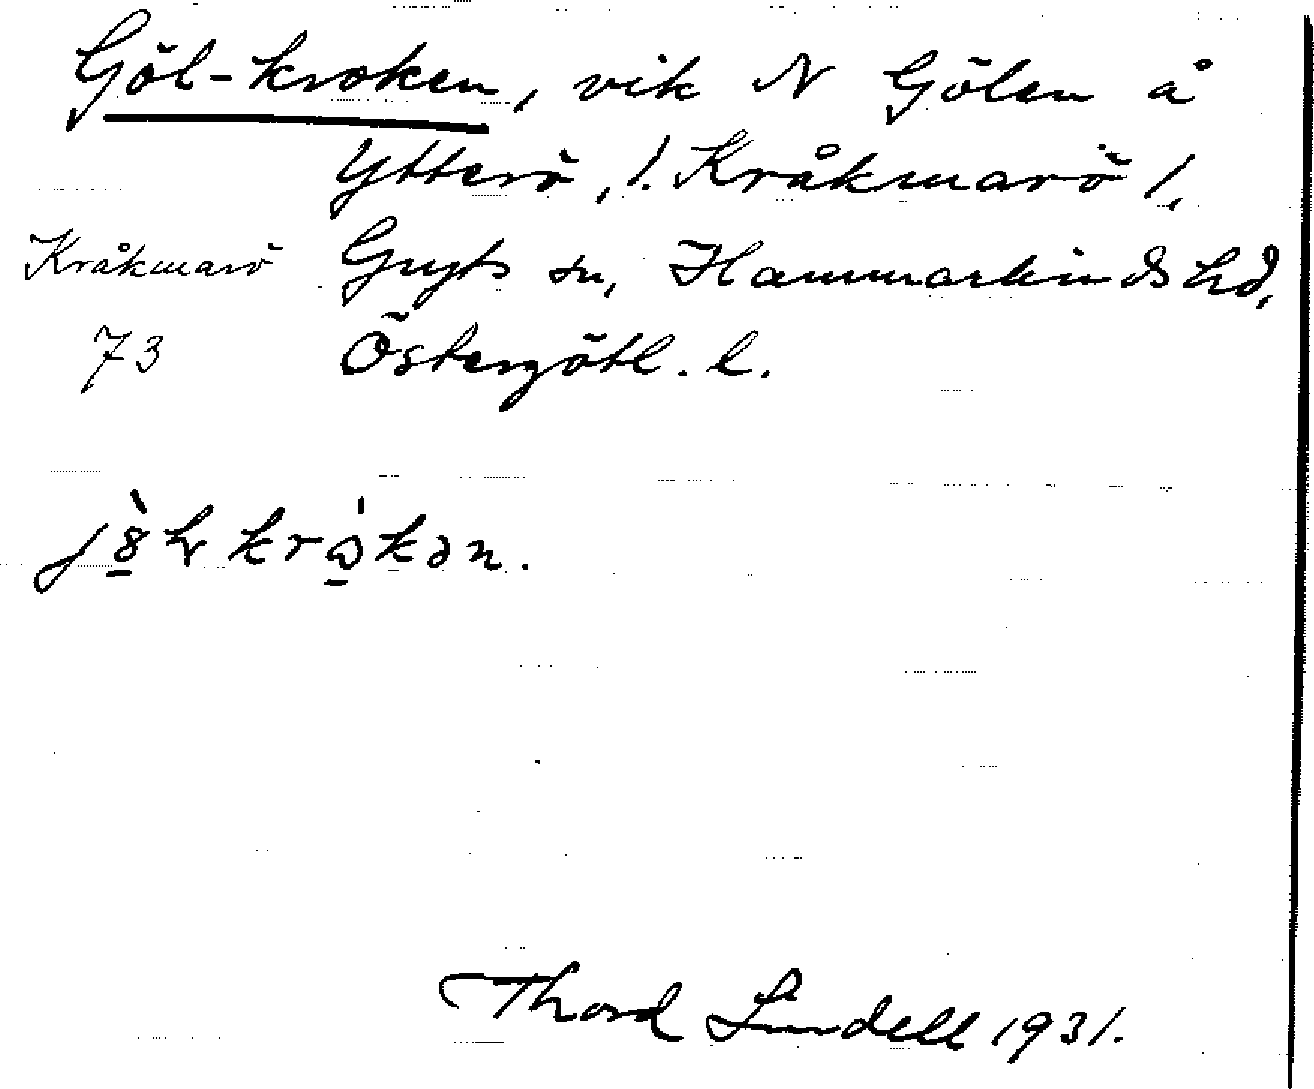 Göl-kroken, vik N Gölen å
Ytterö, /. Kråkmarö /.
Kråkmarö Gryts sn, Hammarkinds hd,
73 Östergötl. l.
Thord Lundell 1931.